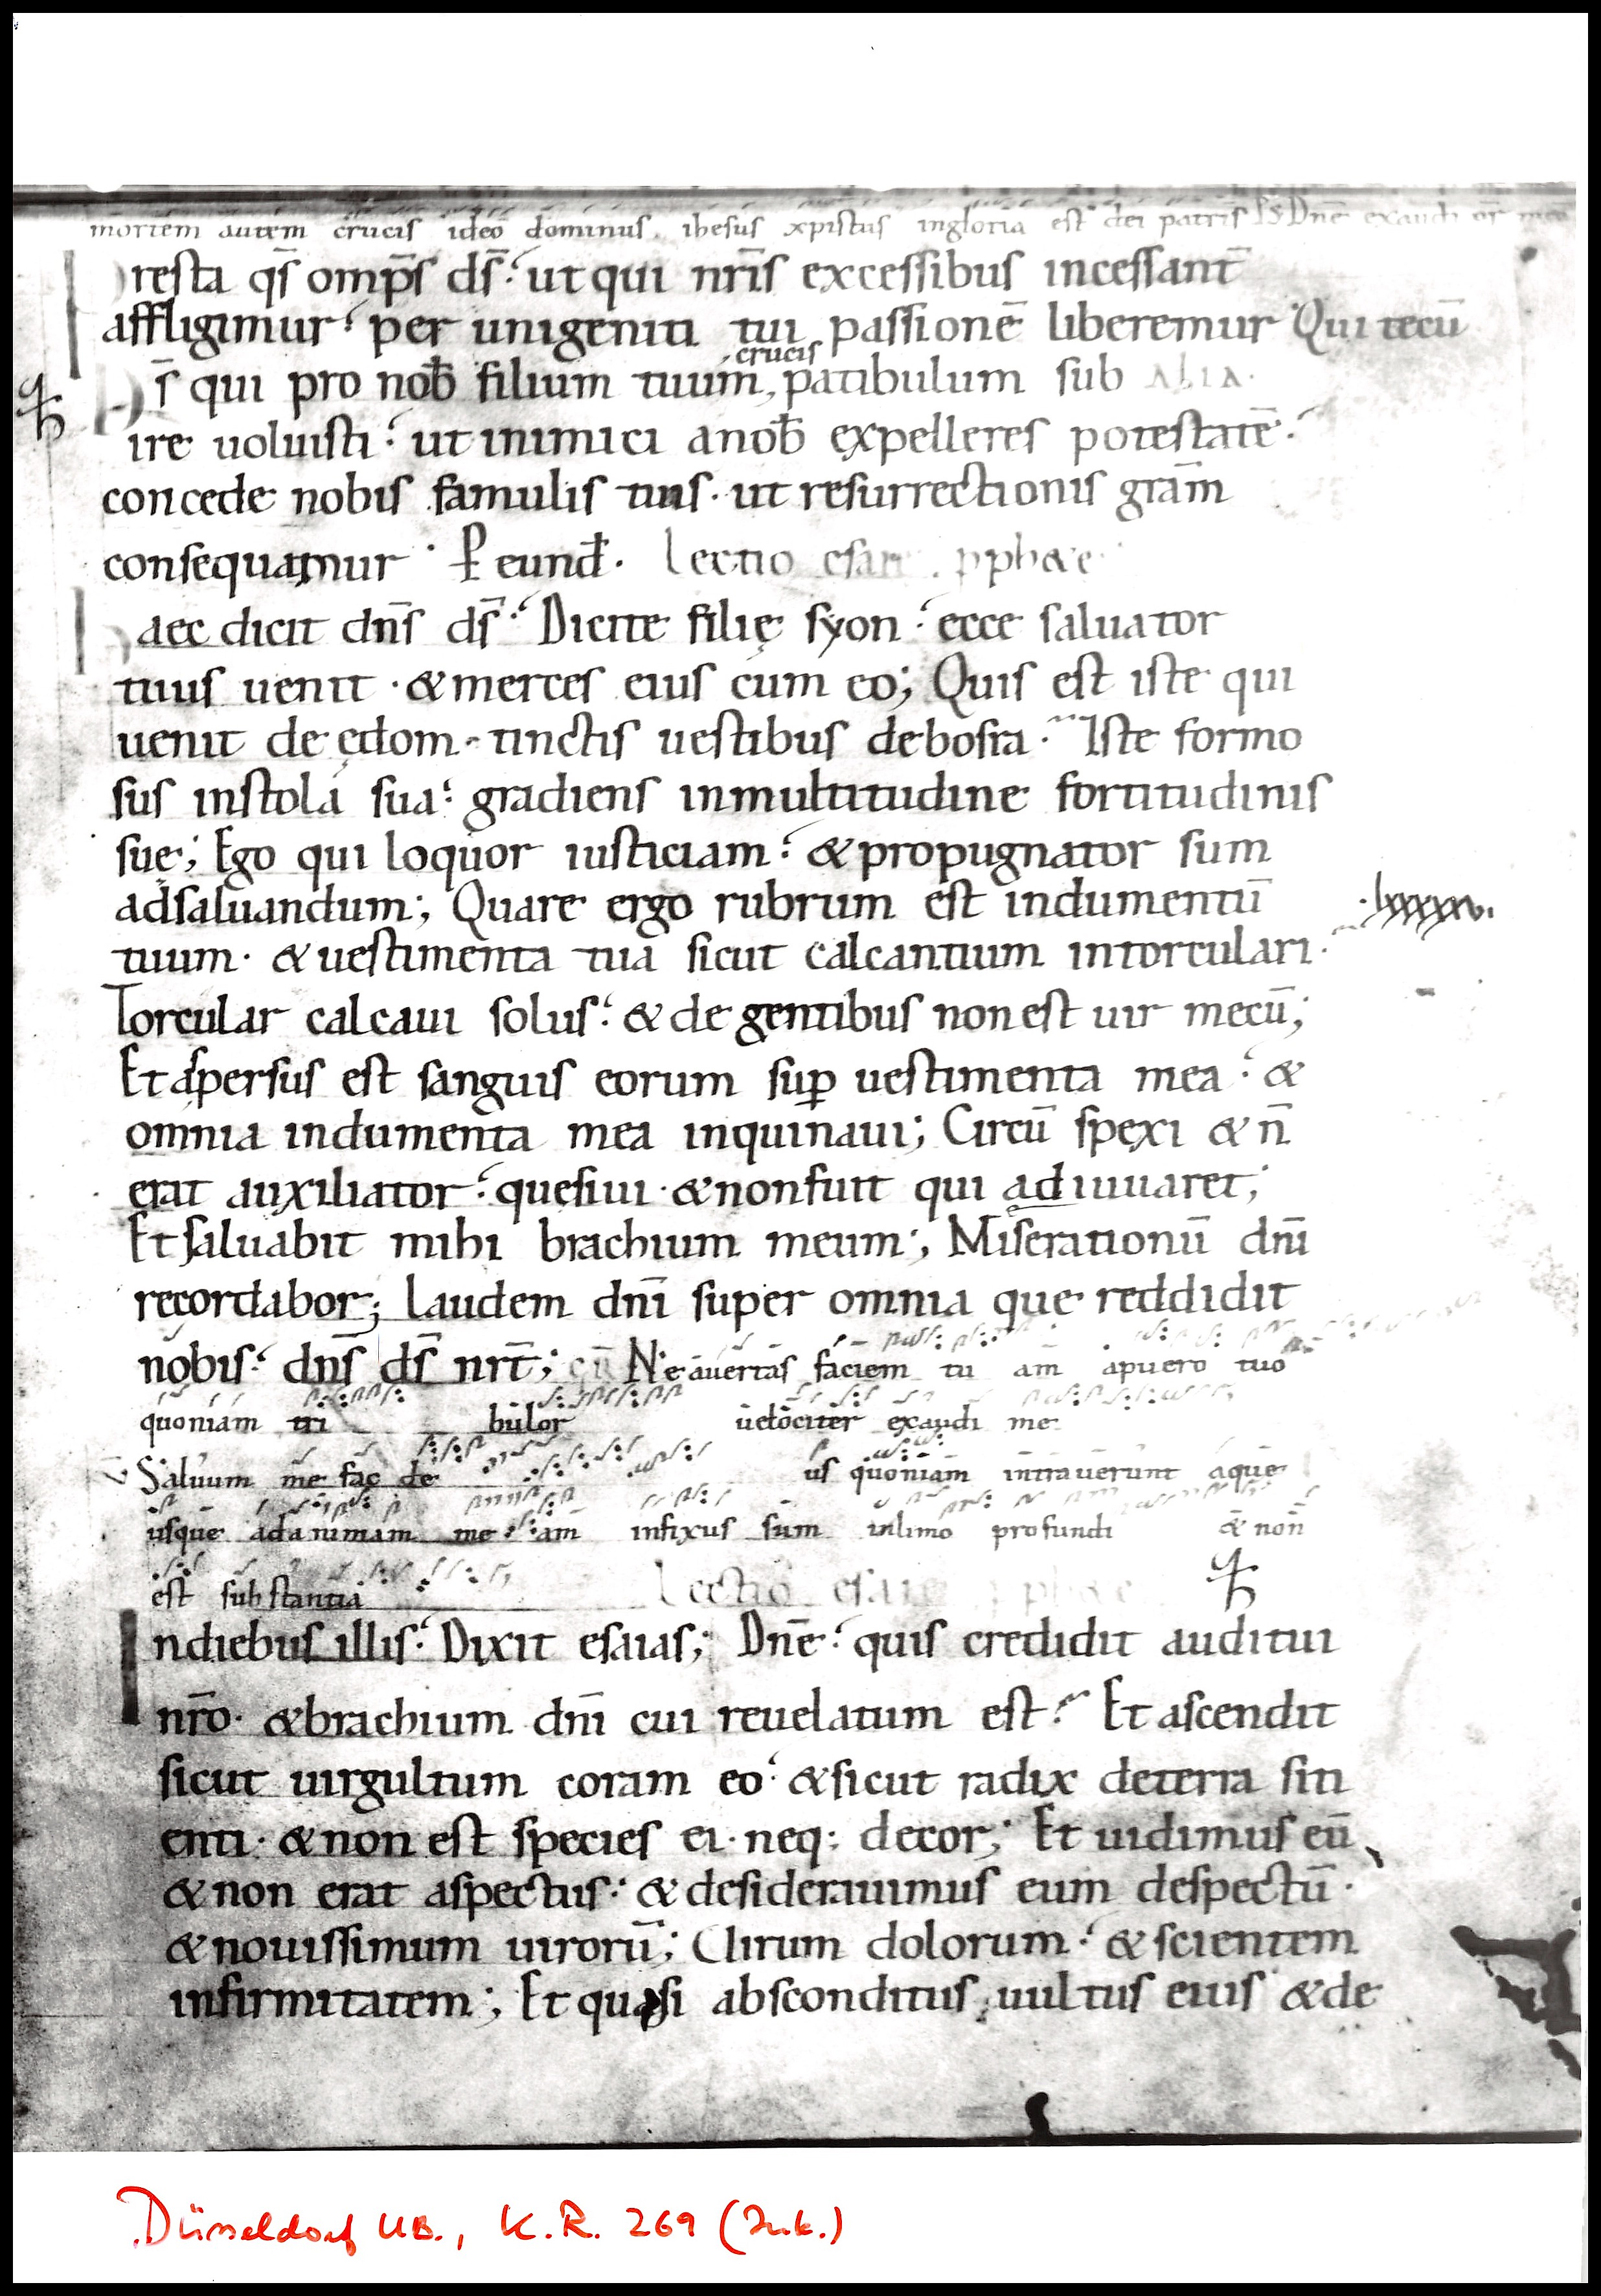 mortem autem crucis ideo dominus ihesus xpistus ingloria est dei patris Ps Dn̄e exaudi or̄ meā
Presta q̄s omp̄s d̄s ut qui nr̄is excessibus incessant̄
affligimur per unigeniti tui passionē liberemur Qui tecū
crucis
D̄s qui pro nob̄ filium tuum, patibulum sub ALIA.
ire uoluisti ut inimici anob̄ expelleres potestatē.
concede nobis famulis tuis. ut resurrectionis grām
consequamur. P eund̄. Lectio esaie pphae
Haec dicit dn̄s d̄s. Dicite filię syon ecce saluator
tuus uenit. & merces eius cum eo; Quis est iste qui
uenit de ędom. tinctis uestibus debosra. Iste formo
sus instola sua. gradiens inmultitudine fortitudinis
suę; Ego qui loquor iusticiam. & propugnator sum
adsaluandum; Quare ergo rubrum est indumentū
.lxxxxv.
tuum. & uestimenta tua sicut calcantium intorculari.
Torcular calcaui solus. & de gentibus non est uir mecū;
Et aspersus est sanguis eorum sup uestimenta mea. &
omnia indumenta mea inquinaui; Circū spexi & n̄
erat auxiliator. quesiui. & nonfuit qui adiuuaret;
Et saluabit mihi brachium meum; Miserationū dn̄i
recordabor; Laudem dn̄i super omnia que reddidit
nobis. dn̄s d̄s nr̄t; Ne auertas faciem tu am apuero tuo
quoniam tri bulor uelociter exaudi me
V Saluum me fac de us quoniam intrauerunt aque
usque adanimam me am infixus sum inlimo profundi & non
est substantia Lectio esaie pphae
Indiebus illis. Dixit esaias; Dn̄e. quis credidit auditui
nr̄o. & brachium dn̄i cui reuelatum est. Et ascendit
sicut uirgultum coram eo. & sicut radix deterra siti
enti. & non est species ei. neq; decor; Et uidimus eū
& non erat aspectus. & desiderauimus eum despectū.
& nouissimum uirorū; Uirum dolorum. & scientem
infirmitatem; Et quasi absconditus uultus eius & de
Düsseldorf UB., K.R. 269 (Ink.)